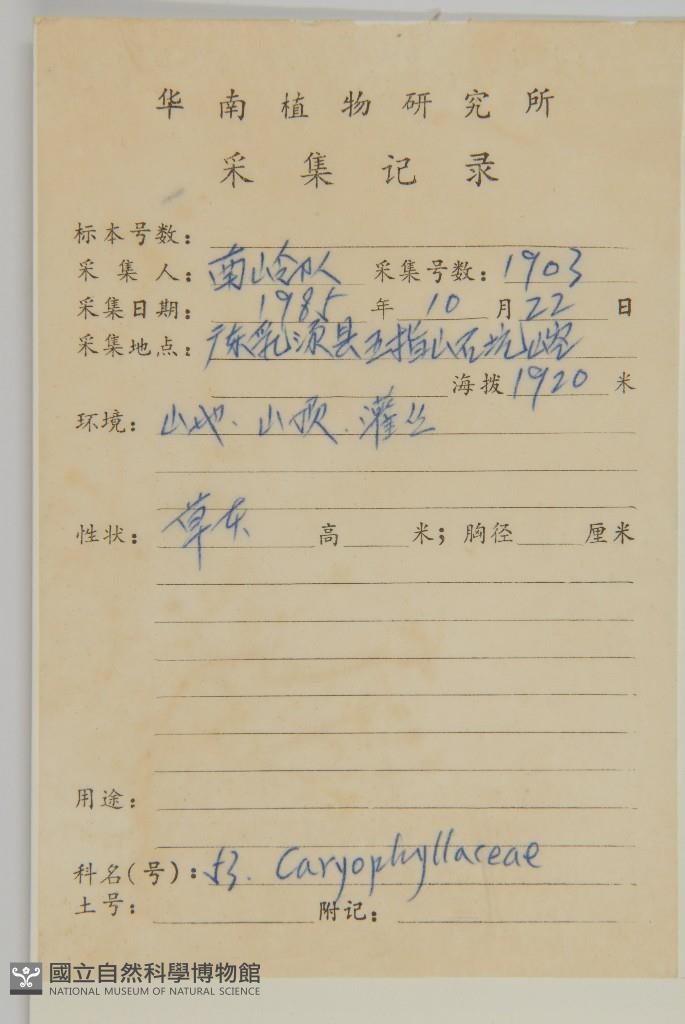 华南植物研究所
采集记录
标本号数：
采集人：南岭队 采集号数：1903
采集日期：1985年10月22日
采集地点：广东乳源县五指山石坑崆
海拨1920米
环境：山地、山顶、灌丛
性状：草本 高 米；胸径 厘米
用途：
科名(号)：53. Caryophyllaceae
土号： 附记：
國立自然科學博物館
NATIONAL MUSEUM OF NATURAL SCIENCE